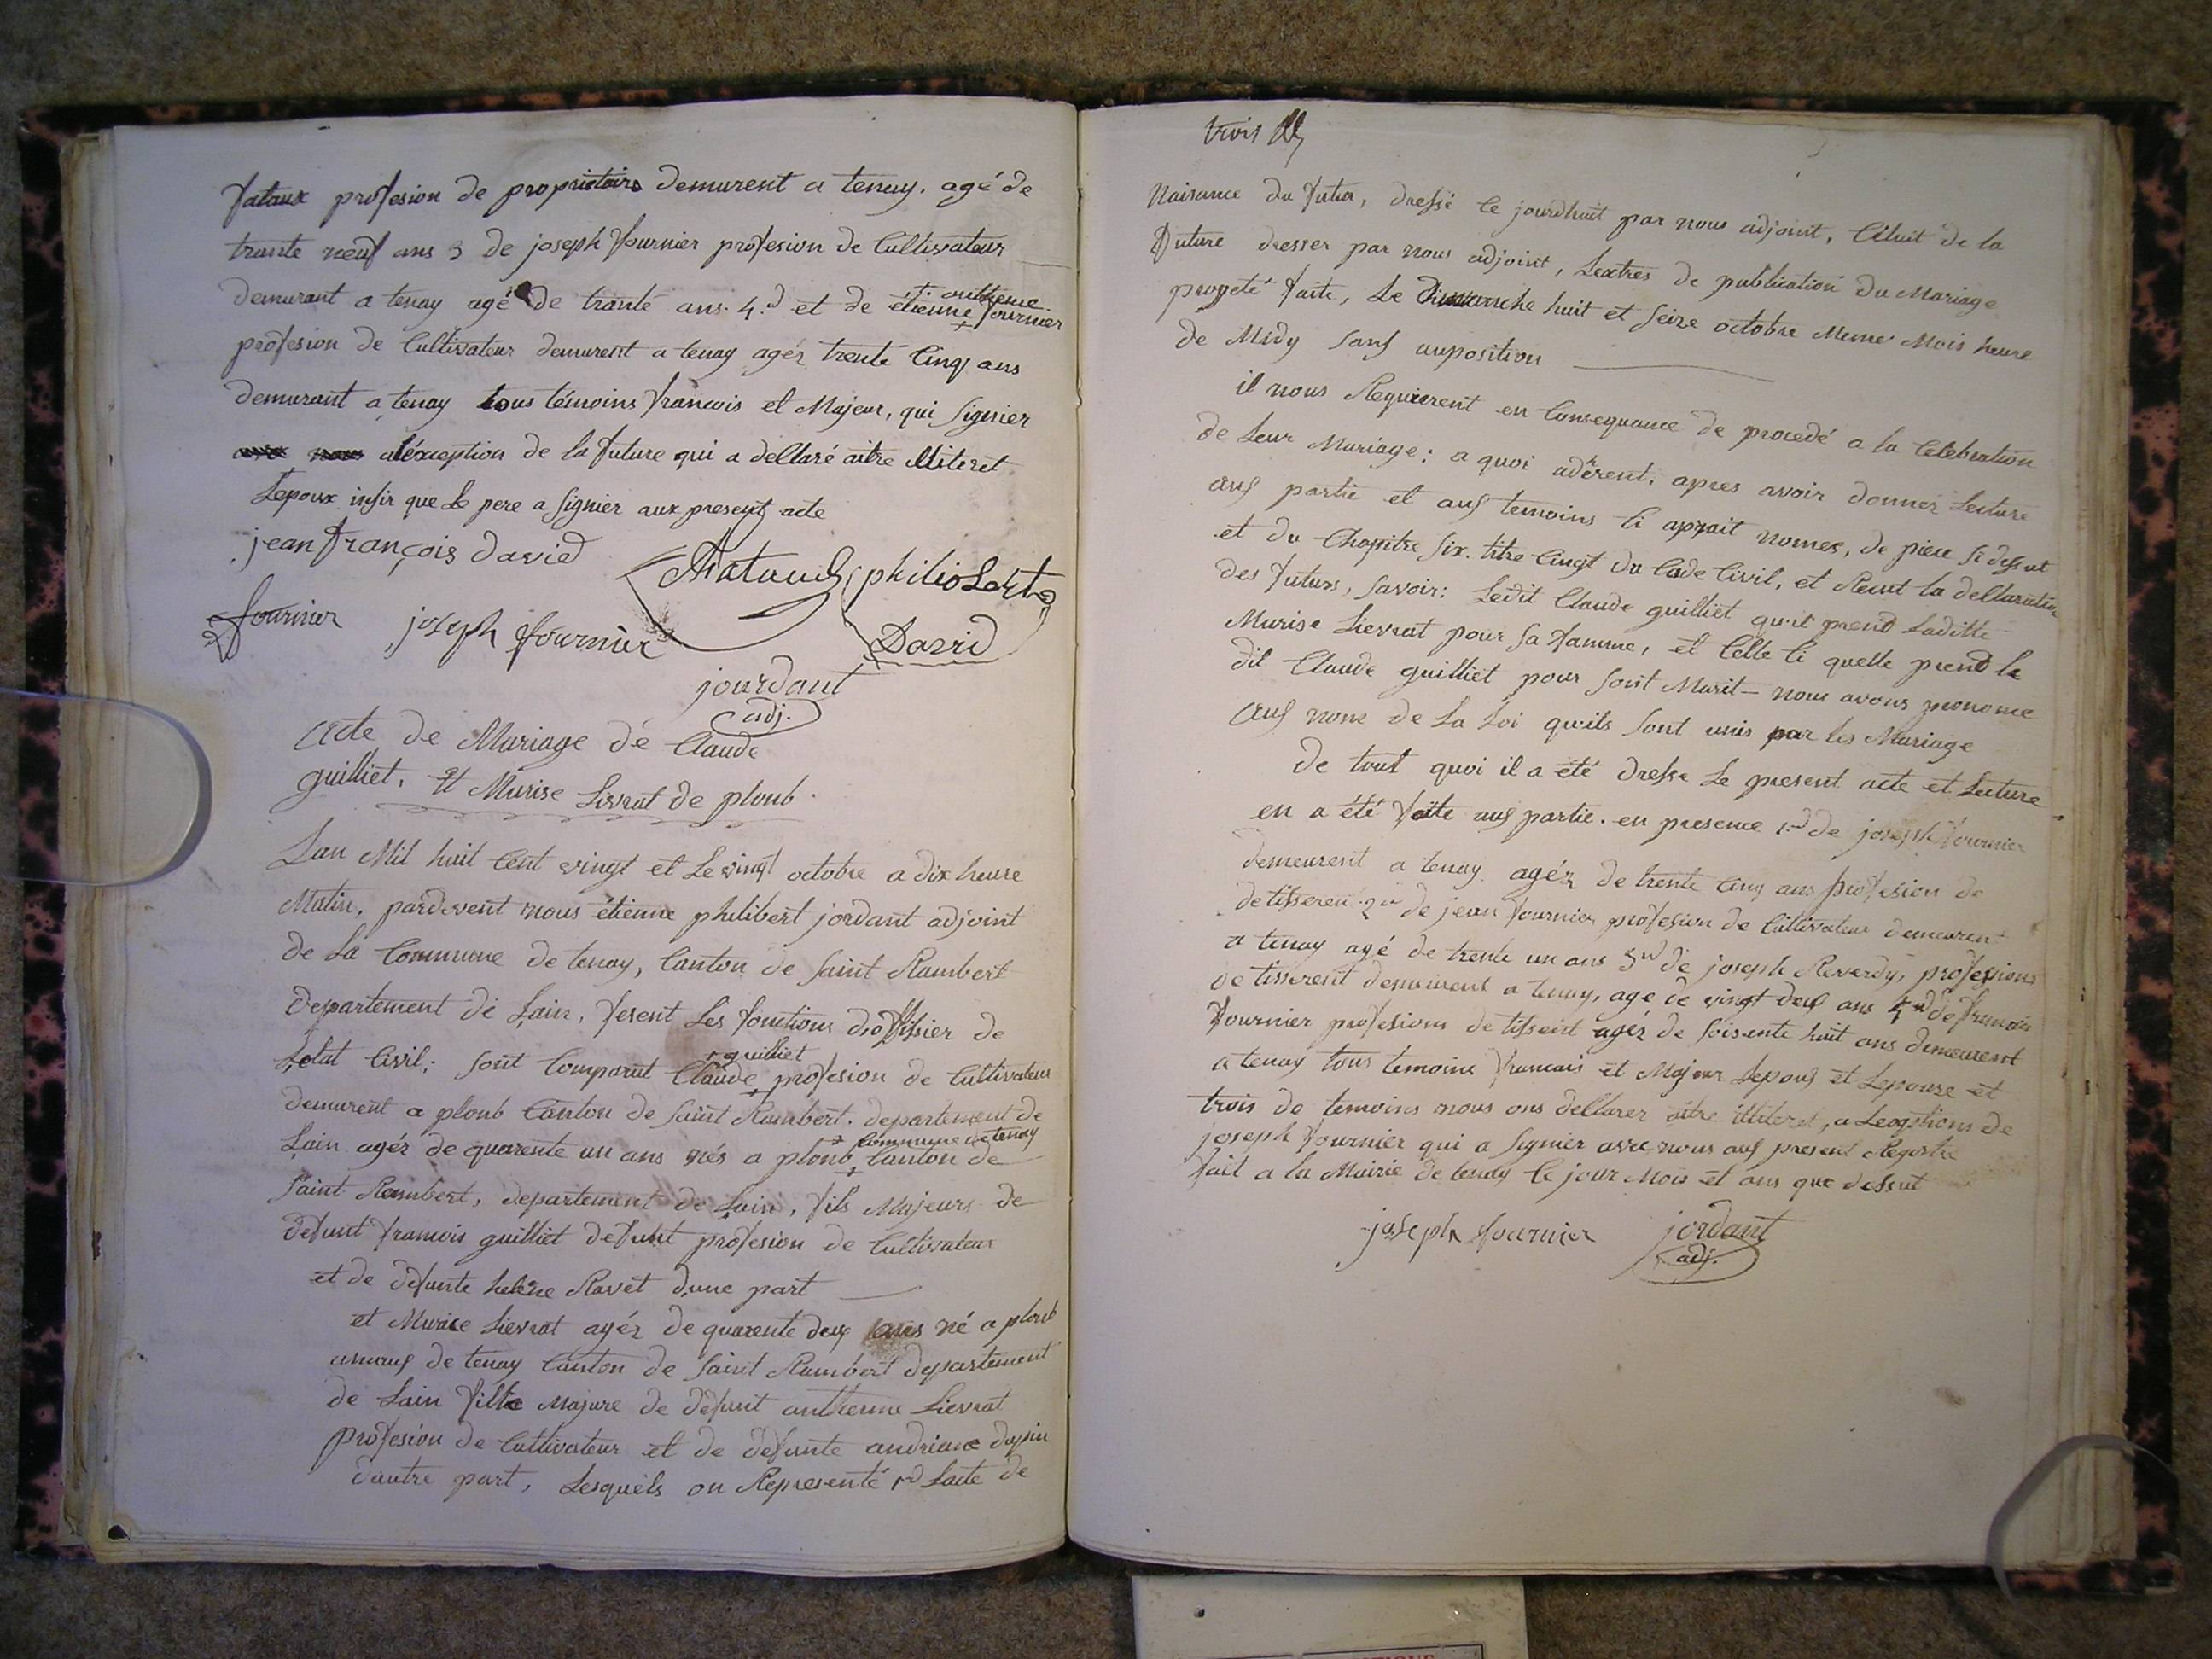 fataux profesion de proprietaire demurent a tenay. agé de
trante neuf ans 3 de joseph fournier profesion de Cultivateur
demurant a tenay agé de tranté ans. 4.d et de étienne fournier
profesion de Cultivateur demurent a tenay agéz trente Cinq ans
demurant a tenay tous témoins francois et Majeur, qui Signier
aléxception de la future qui a dellaré aitre illiteret
Lepoux insir que Le pere a Signier aux present acte
jean françois david
philibert
fournier joseph fournier David
jourdant
adj.
Acte de Mariage dé Claude
guilliet, et Murise Lievrat de plomb.
Lan Mil huit Cent vingt et Le vingt octobre a dix heure
Matin, pardevent nous étienne philibert jordant adjoint
de La Commune de tenay, Canton de Saint Rambert
departement de Lain, fesent Les fonctions d,offisier de
L,etat Civil; Sont Comparut Claude profesion de Cultivateur
guilliet
demurent a plomb Canton de Saint Rambert. departement de
Lain agéz de quarente un ans nés a plomb Canton de
Commune de tenay
Saint Rambert, departement de Lain, fils Majeurs de
defunt francois guilliet defunt profesion de Cultivateur
et de défunte heléne Ravet d,une part
et Murice Lievrat agéz de quarente deux ans né a plomb
de tenay Canton de Saint Rambert departement
de Lain fille Majure de defunt antherme Lievrat
profesion de Cultivateur et de défunte andriane dupin
dautre part, Lesquels on Representé 1.d Lacte de
trois
Naisance du futur, dressé le jourdhuit par nous adjoint, Celuit de la
future dresser par nous adjoint, Lextres de publication du Mariage
progeté faite, Le dimanche huit et Seize octobre Meme Mois heure
de Midy Sans auposition
il nous Requierent en Consequance de procedé a la Celebration
de Leur Mariage: a quoi adérent, apres avoir donner Lecture
aus partie et aus temoins Ci nomes, de piece Si dessut
et du Chapitre Six. titre Cinqt du Code Civil, et Recut la dellaration
des futurs, Savoir: Ledit Claude guilliet qu,il prend Laditte
Murise Lievrat pour Sa famme, et Celle Ci quelle prend le
dit Claude guilliet pour Sont Marit — nous avons prononce
aus nom de La Loi qu,ils Sont unis par les Mariage
de tout quoi il a été dresse Le present acte et Lecture
en a été faite aus partie. en presence 1.d de joseph fournier
demeurent a tenay agéz de trente Cinq ans profesion de
de tisseren 2d de jean fournier profesion de Cultivateur demeurent
a tenay agé de trente un ans 3d de joseph Reverdy, profesions
de tisserent demeurent a tenay, age de vingt deux ans 4d de francois
fournier profesions de tisserent agéz de Soisente huit ans demeurent
a tenay tous temoins francais et Majeur Lepoux et Lepouse et
trois de temoins nous ons dellarer aitre illiteret, a Lexseptions de
joseph fournier qui a Signier avec nous aus present Registre
fait a la Mairie de tenay le jour Mois et ans que dessut
joseph fournier jordant
adj.